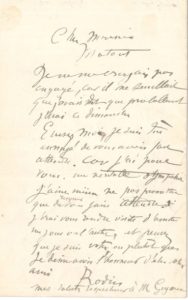 Cher Monsieur
Je ne me croyais pas
engagé, car il me semblait
que j'avais dit que probablement
j'irai ce dimanche
Excusez moi, je suis très
ennuyé de vous avoir fait
attendre. Car j'ai pour
vous, une véritable sympathie
j'aime mieux ne pas promettre
que de vous faire attendre
j'irai vous rendre visite
un jour ou l'autre, et croyez
que je suis votre ou plutot que
l'honneur d'être votre
ami
Rodin
mes saluts respectueux à